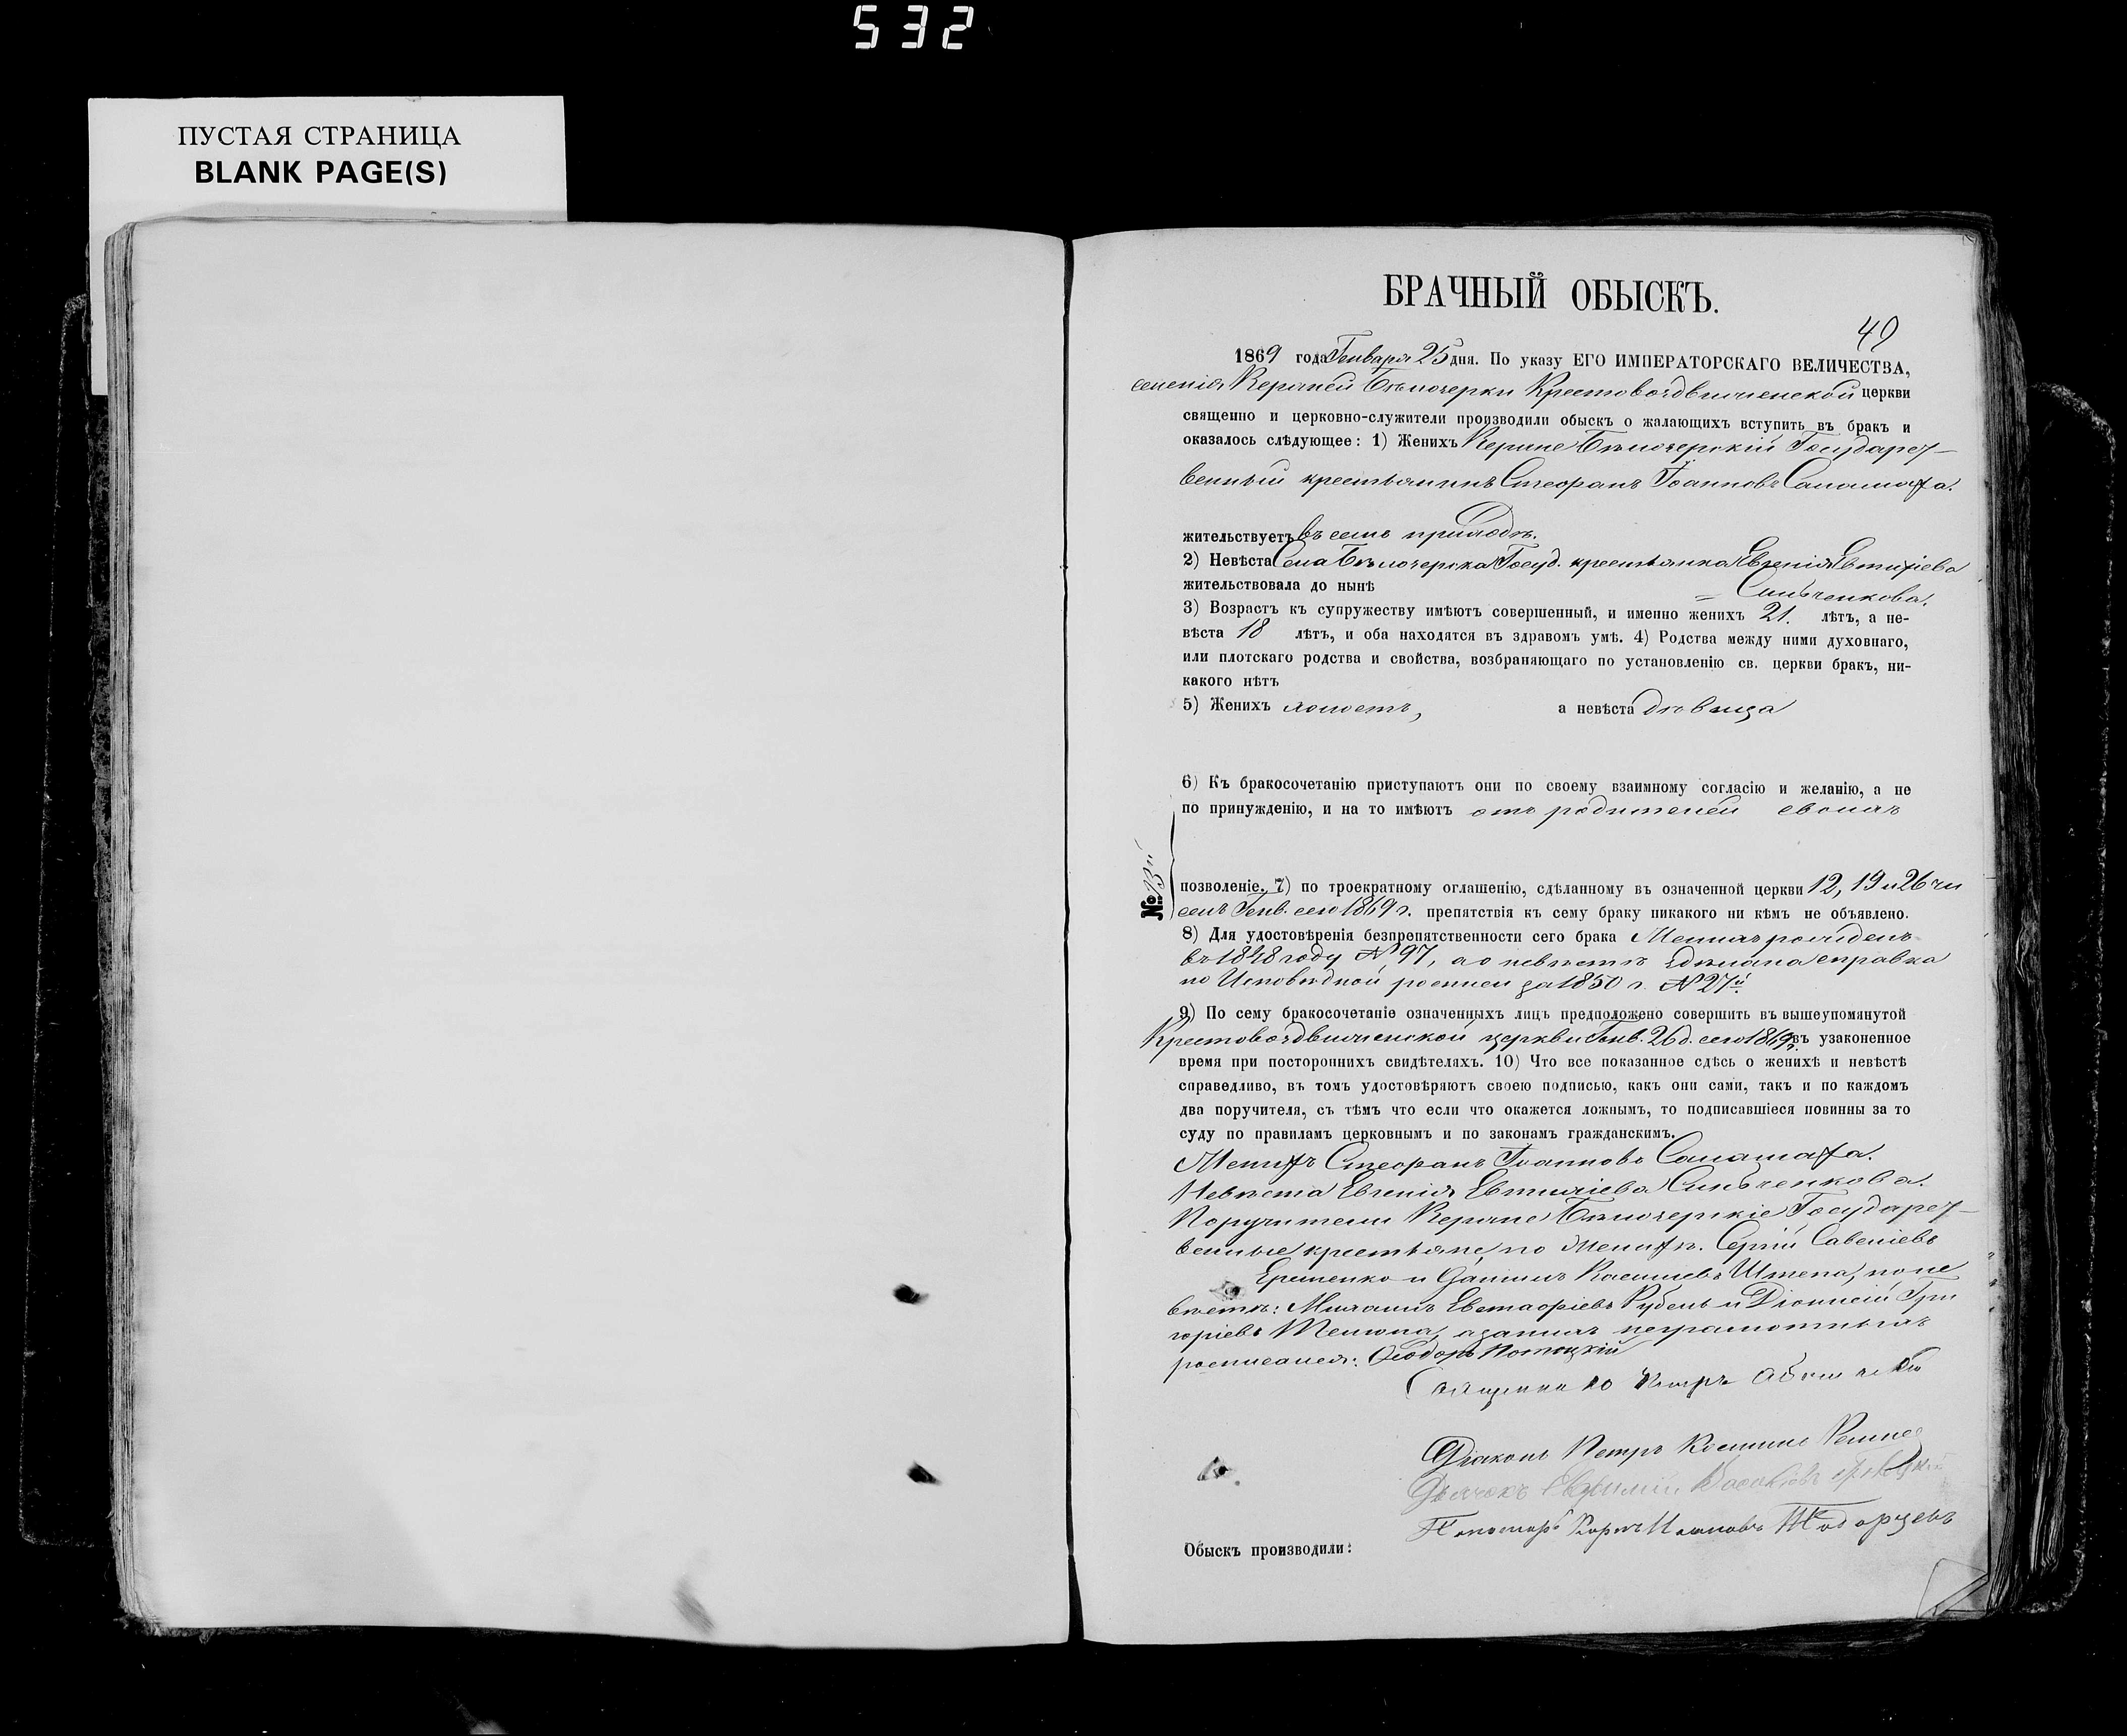 532
ПУСТАЯ СТРАНИЦА
BLANK PAGE(S)
БРАЧНЫЙ ОБЫСКЪ.
49
1869 года Генваря 25 дня. По указу ЕГО ИМПЕРАТОРСКАГО ВЕЛИЧЕСТВА,
селенія Верхней Бѣлозерки Крестовоздвиженской церкви
священно и церковно-служители производили обыскъ о жалающихъ вступить въ бракъ и
оказалось слѣдующее: 1) Женихъ Верхне Бѣлозерскій Государст-
венный крестьянинъ Стефанъ Іоанновъ
жительствуетъ въ семъ приходѣ.
2) Невѣста Села Бѣлозерка Госуд. крестьянка Евгенія Евтихіева
жительствовала до нынѣ Синьченкова.
3) Возрастъ къ супружеству имѣютъ совершенный, и именно женихъ 21. лѣтъ, а не-
вѣста 18 лѣтъ, и оба находятся въ здравомъ умѣ. 4) Родства между ними духовнаго,
или плотскаго родства и свойства, возбраняющаго по установленію св. церкви бракъ, ни-
какого нѣтъ
5) Женихъ холостъ, а невѣста дѣвица
6) Къ бракосочетанію приступаютъ они по своему взаимному согласію и желанію, а не
по принужденію, и на то имѣютъ отъ родителей своихъ
№ 13й
позволеніе. 7) по троекратному оглашенію, сдѣланному въ означенной церкви 12, 19 и 26 чи
слъ Генв. сего 1869 г. препятствія къ сему браку никакого ни кѣмъ не объявлено.
8) Для удостовѣренія безпрепятственности сего брака Женихъ рожденъ
въ 1848 году № 97, а о невѣстѣ здѣлана справка
по Исповѣдной росписи за 1850 г. № 27й
9) По сему бракосочетаніе означенныхъ лицъ предположено совершить въ вышеупомянутой
Крестовоздвиженской церкви Генв. 26 д. сего 1869 г. въ узаконенное
время при постороннихъ свидѣтеляхъ. 10) Что все показанное сдѣсь о женихѣ и невѣстѣ
справедливо, въ томъ удостовѣряютъ своею подписью, какъ они сами, такъ и по каждомъ
два поручителя, съ тѣмъ что если что окажется ложнымъ, то подписавшіеся повинны за то
суду по правиламъ церковнымъ и по законамъ гражданскимъ.
Женихъ Стефанъ Іоанновъ
Невѣста Евгенія Евтихіева Синьченкова.
Поручители Верхне Бѣлозерскіе Государст-
венные крестьяне, по Женихѣ. Сергій Савеліевъ
Еременко и Даніилъ Касіяновъ Штепа, по не
вѣстѣ: Михаилъ Евстафіевъ Рубель и Діонисій Гри
горіевъ а за нихъ неграмотныхъ
росписался: Ѳеодоръ Потоцкій
Священникъ Петръ
Діаконъ Петръ
Дьячокъ Евфимій
Пономарь
Обыскъ производили: